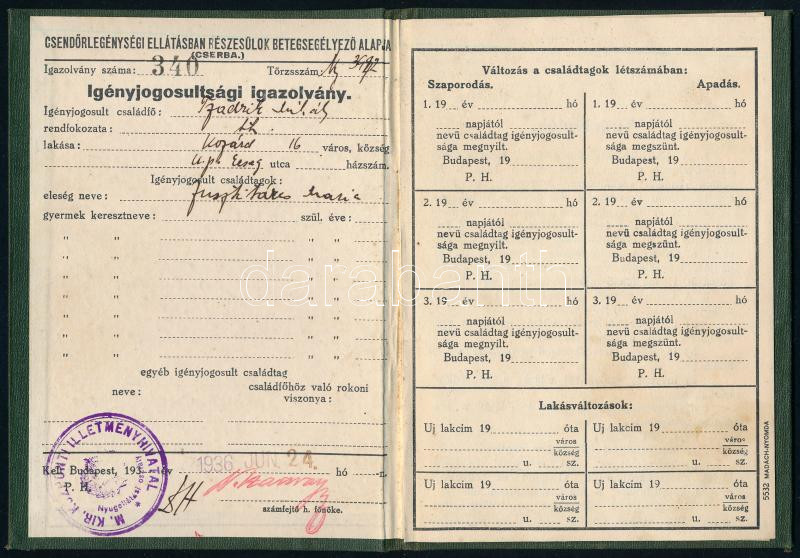 CSENDŐRLEGÉNYSÉGI ELLÁTÁSBAN RÉSZESÜLŐK BETEGSEGÉLYEZŐ ALAPJA
(CSERBA.)
Igazolvány száma: 340 Törzsszám
Igényjogosultsági igazolvány.
Igényjogosult családfő: Mihály
rendfokozata:
lakása: Kozárd 16 város, község
u. p. Ecseg utca házszám.
Igényjogosult családtagok:
eleség neve: Mária
gyermek keresztneve: szül. éve:
" " " "
" " " "
" " " "
" " " "
" " " "
" " " "
egyéb igényjogosult családtag
neve: családfőhöz való rokoni
viszonya:
M. KIR. KÖZPONTI ILLETMÉNYHIVATAL
Kelt Budapest, 193 év 1936 JUN. 24. hó n.
P. H.
számfejtő h. főnöke.
Változás a családtagok létszámában:
Szaporodás. Apadás.
1. 19 év hó
napjától
nevű családtag igényjogosult-
sága megnyilt.
Budapest, 19
P. H.
1. 19 év hó
napjától
nevű családtag igényjogosult-
sága megszünt.
Budapest, 19
P. H.
2. 19 év
napjától
nevű családtag igényjogosult-
sága megnyilt.
Budapest, 19
P. H.
2. 19 év hó
napjától
nevű családtag igényjogosult-
sága megszünt.
Budapest, 19
P. H.
3. 19 év hó
napjától
nevű családtag igényjogosult-
sága megnyilt.
Budapest, 19
P. H.
3. 19 év hó
napjától
nevű családtag igényjogosult-
sága megszünt.
Budapest, 19
P. H.
Lakásváltozások:
Uj lakcim 19 óta
város
község
u. sz.
Uj lakcim 19 óta
város
község
u. sz.
Uj lakcim 19 óta
város
község
u. sz.
Uj lakcim 19 óta
város
község
u. sz.
5532 MADÁCH-NYOMDA
darabanth